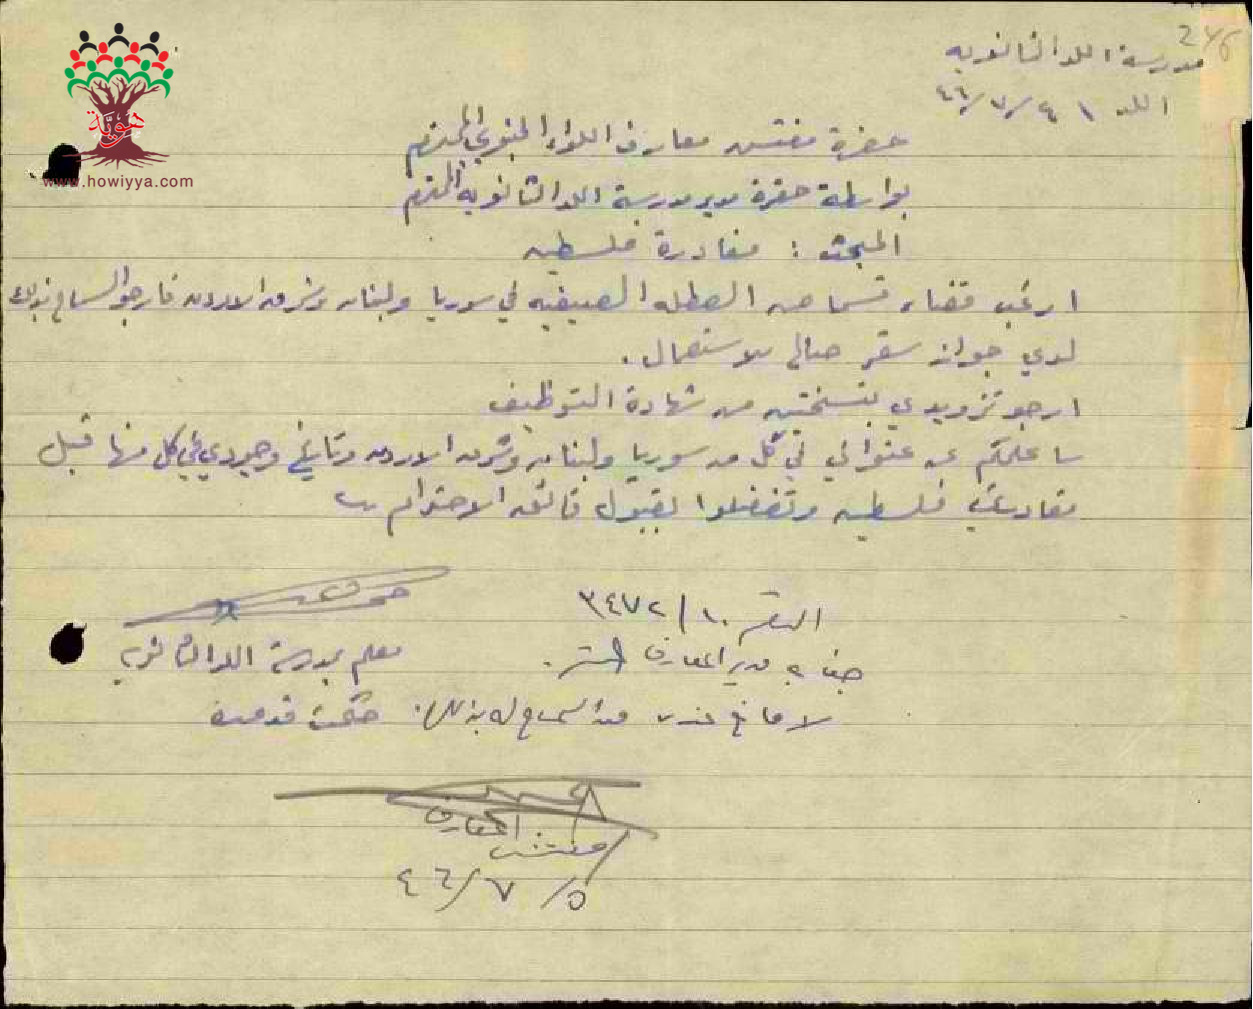 246
مدرسة اللد الثانويه
اللد ١ ٤/٧/٤٦
هوية
www.howiyya.com
حضرة مفتش معارف اللواء الجنوبي المحترم
بواسطة حضرة مدير مدرسة اللد الثانويه المحترم
المبحث : مغادرة فلسطين
ارغب قضاء قسما من العطله الصيفيه في سوريا ولبنان وشرق الاردن فارجو السماح بذلك
لدي جواز سفر صالح للاستعمال .
ارجو تزويدي بنسختين من شهادة التوظيف
ساعلمكم عن عنواني في كل من سوريا ولبنان وشرق الاردن وتاريخ وجودي في كل منها قبل
مغادرتي فلسطين وتفضلوا بقبول فائق الاحترام
معلم بمدرسة اللد الثانويه
الرقم ١٠/٣٤٧٢
جناب مدير المعارف
لا مانع عندي من السماح له بذلك .
مفتش المعارف
٥/٧/٤٦